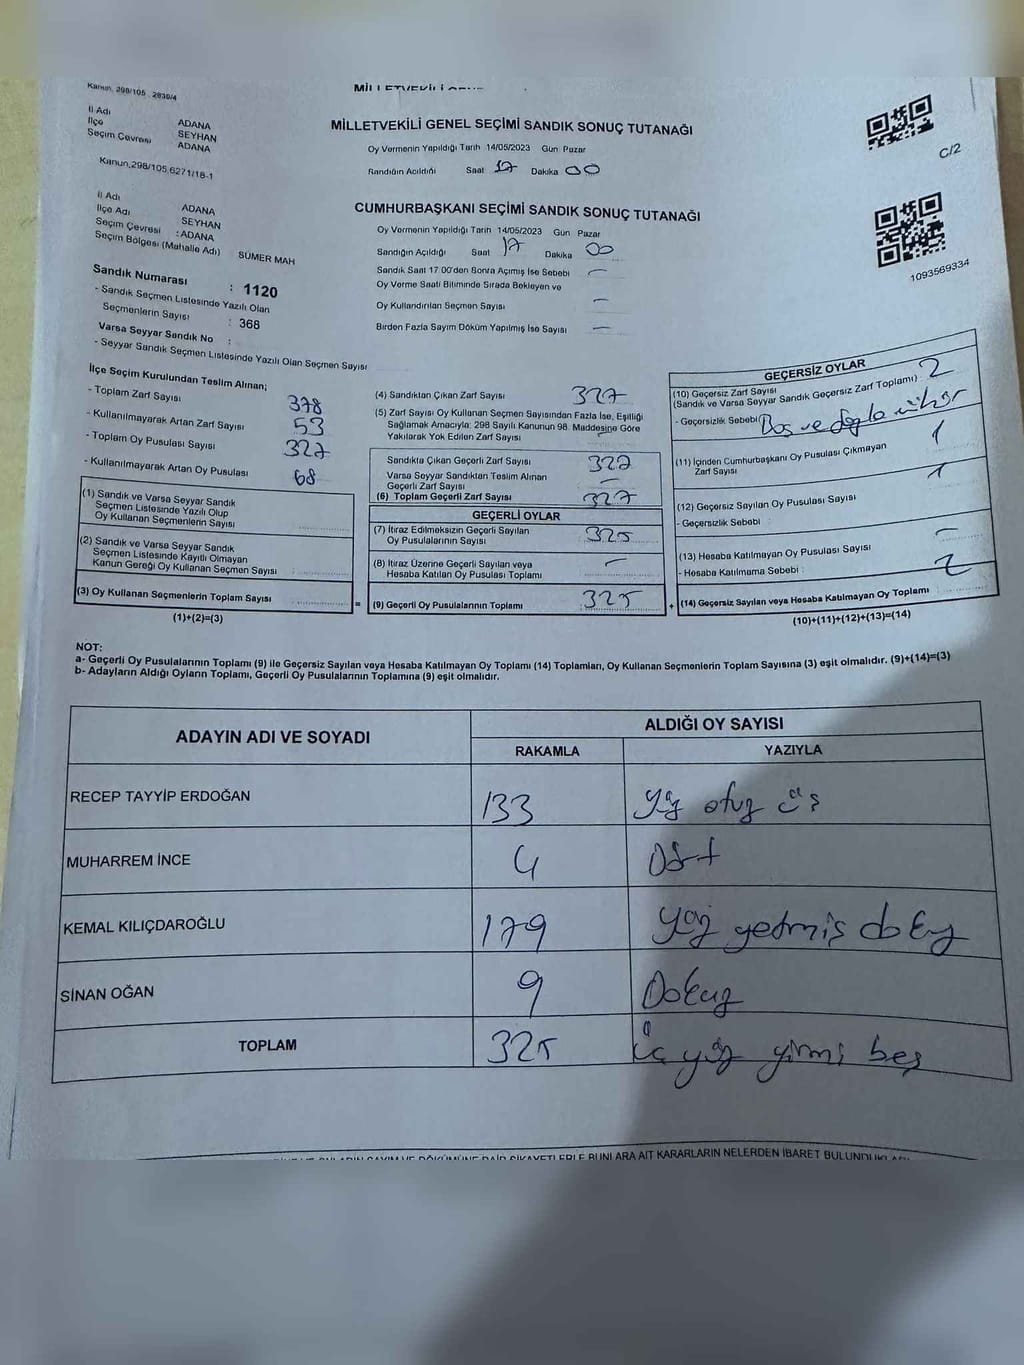 Kanun. 298/105 . 2839/4
İl Adı ADANA
İlçe SEYHAN
Seçim Çevresi ADANA
MİLLETVEKİLİ GENEL SEÇİMİ SANDIK SONUÇ TUTANAĞI
Oy Vermenin Yapıldığı Tarih 14/05/2023 Gün Pazar
Sandığın Açıldığı Saat 17 Dakika 00
C/2
Kanun.298/105.6271/18-1
İl Adı ADANA
İlçe Adı SEYHAN
Seçim Çevresi : ADANA
Seçim Bölgesi (Mahalle Adı) SÜMER MAH
CUMHURBAŞKANI SEÇİMİ SANDIK SONUÇ TUTANAĞI
Oy Vermenin Yapıldığı Tarih 14/05/2023 Gün Pazar
Sandığın Açıldığı Saat 17 Dakika 00
Sandık Saat 17 00'den Sonra Açımış İse Sebebi —
Oy Verme Saati Bitiminde Sırada Bekleyen ve
Oy Kullandırılan Seçmen Sayısı —
Birden Fazla Sayım Döküm Yapılmış İse Sayısı —
1093569334
Sandık Numarası : 1120
- Sandık Seçmen Listesinde Yazılı Olan
Seçmenlerin Sayısı : 368
Varsa Seyyar Sandık No :
- Seyyar Sandık Seçmen Listesinde Yazılı Olan Seçmen Sayısı
İlçe Seçim Kurulundan Teslim Alınan;
- Toplam Zarf Sayısı 378
- Kullanılmayarak Artan Zarf Sayısı 53
- Toplam Oy Pusulası Sayısı 327
- Kullanılmayarak Artan Oy Pusulası 68
(1) Sandık ve Varsa Seyyar Sandık
Seçmen Listesinde Yazılı Olup
Oy Kullanan Seçmenlerin Sayısı
(2) Sandık ve Varsa Seyyar Sandık
Seçmen Listesinde Kayıtlı Olmayan
Kanun Gereği Oy Kullanan Seçmen Sayısı
(3) Oy Kullanan Seçmenlerin Toplam Sayısı
(1)+(2)=(3)
(4) Sandıktan Çıkan Zarf Sayısı 327
(5) Zarf Sayısı Oy Kullanan Seçmen Sayısından Fazla İse, Eşitliği
Sağlamak Amacıyla; 298 Sayılı Kanunun 98. Maddesine Göre
Yakılarak Yok Edilen Zarf Sayısı —
Sandıkta Çıkan Geçerli Zarf Sayısı 327
Varsa Seyyar Sandıktan Teslim Alınan
Geçerli Zarf Sayısı —
(6) Toplam Geçerli Zarf Sayısı 327
GEÇERLİ OYLAR
(7) İtiraz Edilmeksizin Geçerli Sayılan
Oy Pusulalarının Sayısı 325
(8) İtiraz Üzerine Geçerli Sayılan veya
Hesaba Katılan Oy Pusulası Toplamı —
= (9) Geçerli Oy Pusulalarının Toplamı 325
GEÇERSİZ OYLAR
(10) Geçersiz Zarf Sayısı
(Sandık ve Varsa Seyyar Sandık Geçersiz Zarf Toplamı) : 2
- Geçersizlik Sebebi Boş ve
(11) İçinden Cumhurbaşkanı Oy Pusulası Çıkmayan
Zarf Sayısı 1
(12) Geçersiz Sayılan Oy Pusulası Sayısı 1
- Geçersizlik Sebebi :
(13) Hesaba Katılmayan Oy Pusulası Sayısı —
- Hesaba Katılmama Sebebi :
+ (14) Geçersiz Sayılan veya Hesaba Katılmayan Oy Toplamı 2
(10)+(11)+(12)+(13)=(14)
NOT:
a- Geçerli Oy Pusulalarının Toplamı (9) ile Geçersiz Sayılan veya Hesaba Katılmayan Oy Toplamı (14) Toplamları, Oy Kullanan Seçmenlerin Toplam Sayısına (3) eşit olmalıdır. (9)+(14)=(3)
b- Adayların Aldığı Oyların Toplamı, Geçerli Oy Pusulalarının Toplamına (9) eşit olmalıdır.
ADAYIN ADI VE SOYADI ALDIĞI OY SAYISI
RAKAMLA YAZIYLA
RECEP TAYYİP ERDOĞAN 133 Yüz otuz üş
MUHARREM İNCE 4 Dört
KEMAL KILIÇDAROĞLU 179 Yüz yetmiş dokuz
SİNAN OĞAN 9 Dokuz
TOPLAM 325 üç yüz yirmi beş
KARARLARIN NELERDEN İBARET BULUNDUKLARI